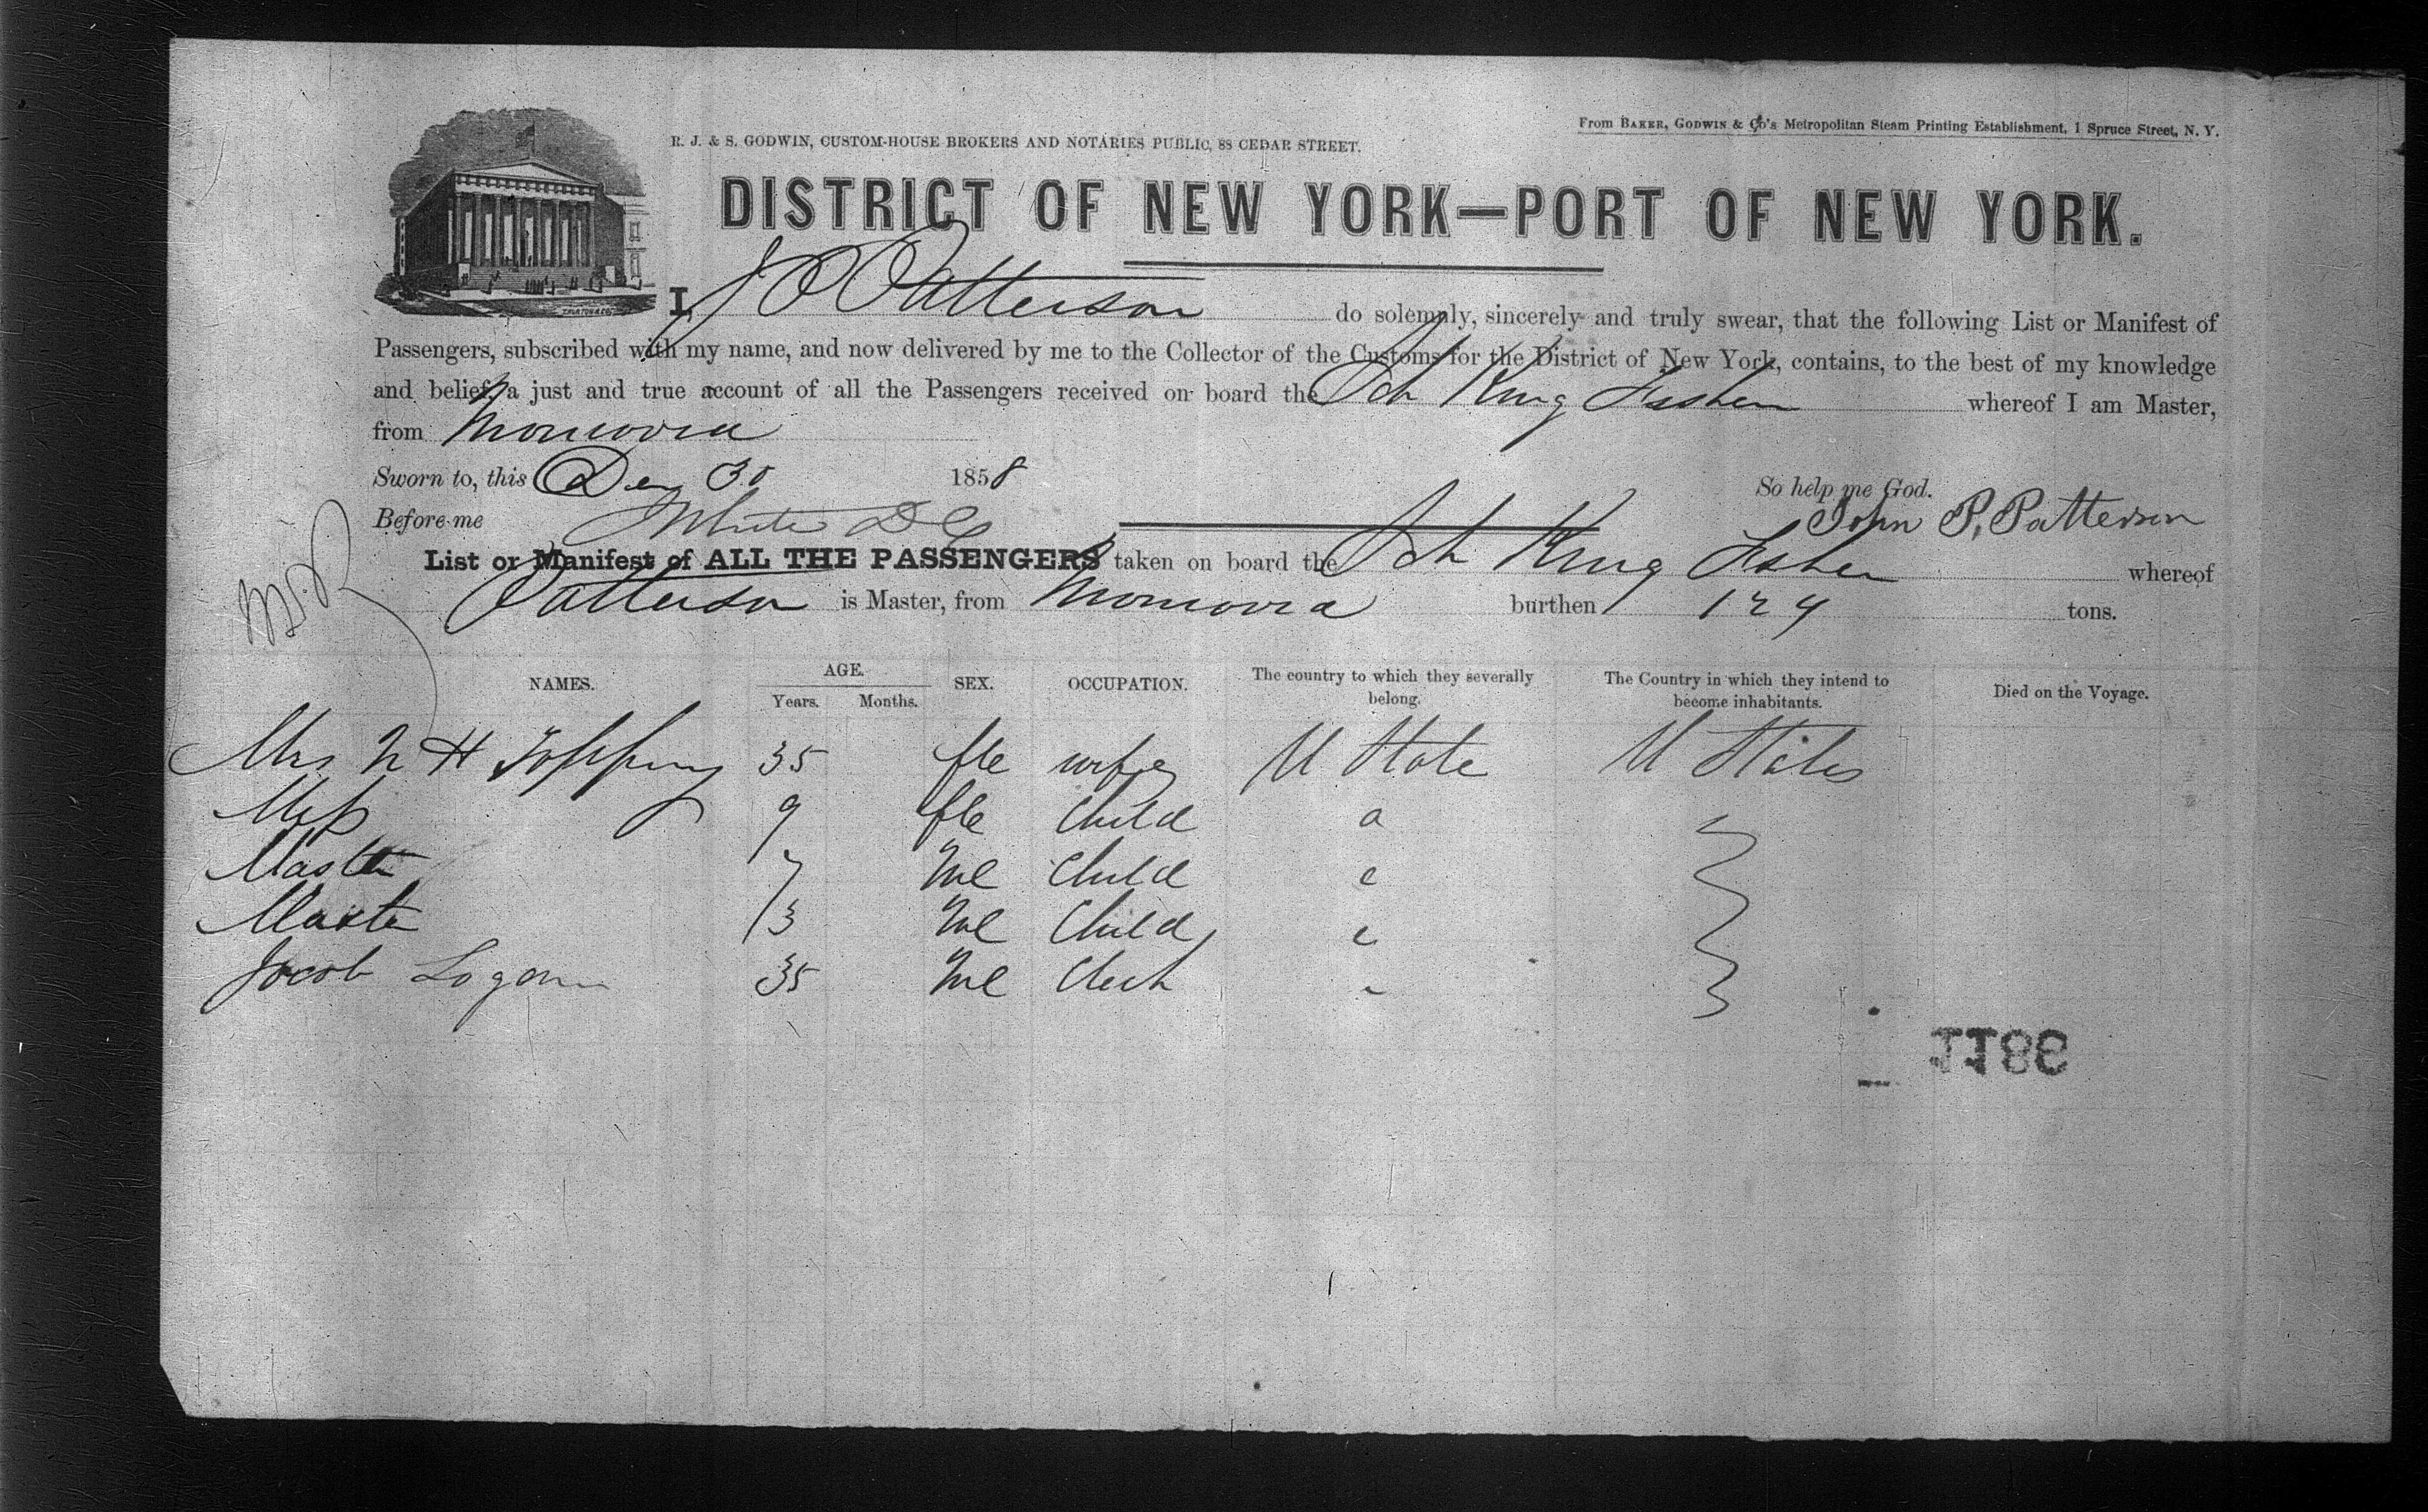 From BAKER, GODWIN & Co's Metropolitan Steam Printing Establishment, 1 Spruce Street, N. Y.
R. J. & S. GODWIN, CUSTOM-HOUSE BROKERS AND NOTARIES PUBLIC, 88 CEDAR STREET.
DISTRICT OF NEW YORK—PORT OF NEW YORK.
I, J P Patterson do solemnly, sincerely and truly swear, that the following List or Manifest of
Passengers, subscribed with my name, and now delivered by me to the Collector of the Customs for the District of New York, contains, to the best of my knowledge
and belief, a just and true account of all the Passengers received on board the Sch King Fisher whereof I am Master,
from Monrovia
Sworn to, this Dec 30 1858 So help me God.
Before me White D C John P. Patterson
List or Manifest of ALL THE PASSENGERS taken on board the Sch King Fisher whereof
Patterson is Master, from Monrovia burthen 124 tons.
NAMES. AGE. Years. Months. SEX. OCCUPATION. The country to which they severally belong. The Country in which they intend to become inhabitants. Died on the Voyage.
Mrs N H Topping 35 fle wife U State U States
Miss 9 fle Child
Master 7 Me Child
Master 3 Me Child
Jacob Logan 35 Me Clerk
1186